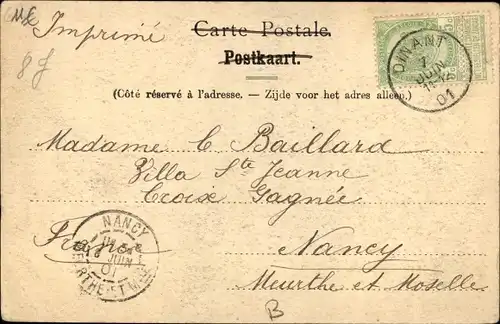 Imprimé
Carte Postale.
Postkaart.
(Côté réservé à l'adresse. — Zijde voor het adres alleen.)
DINANT
1
JUIN
01
Madame C. Baillard
Villa Ste Jeanne
Croix Gagnée
Nancy
Meurthe et Moselle
NANCY
JUIN
01
B